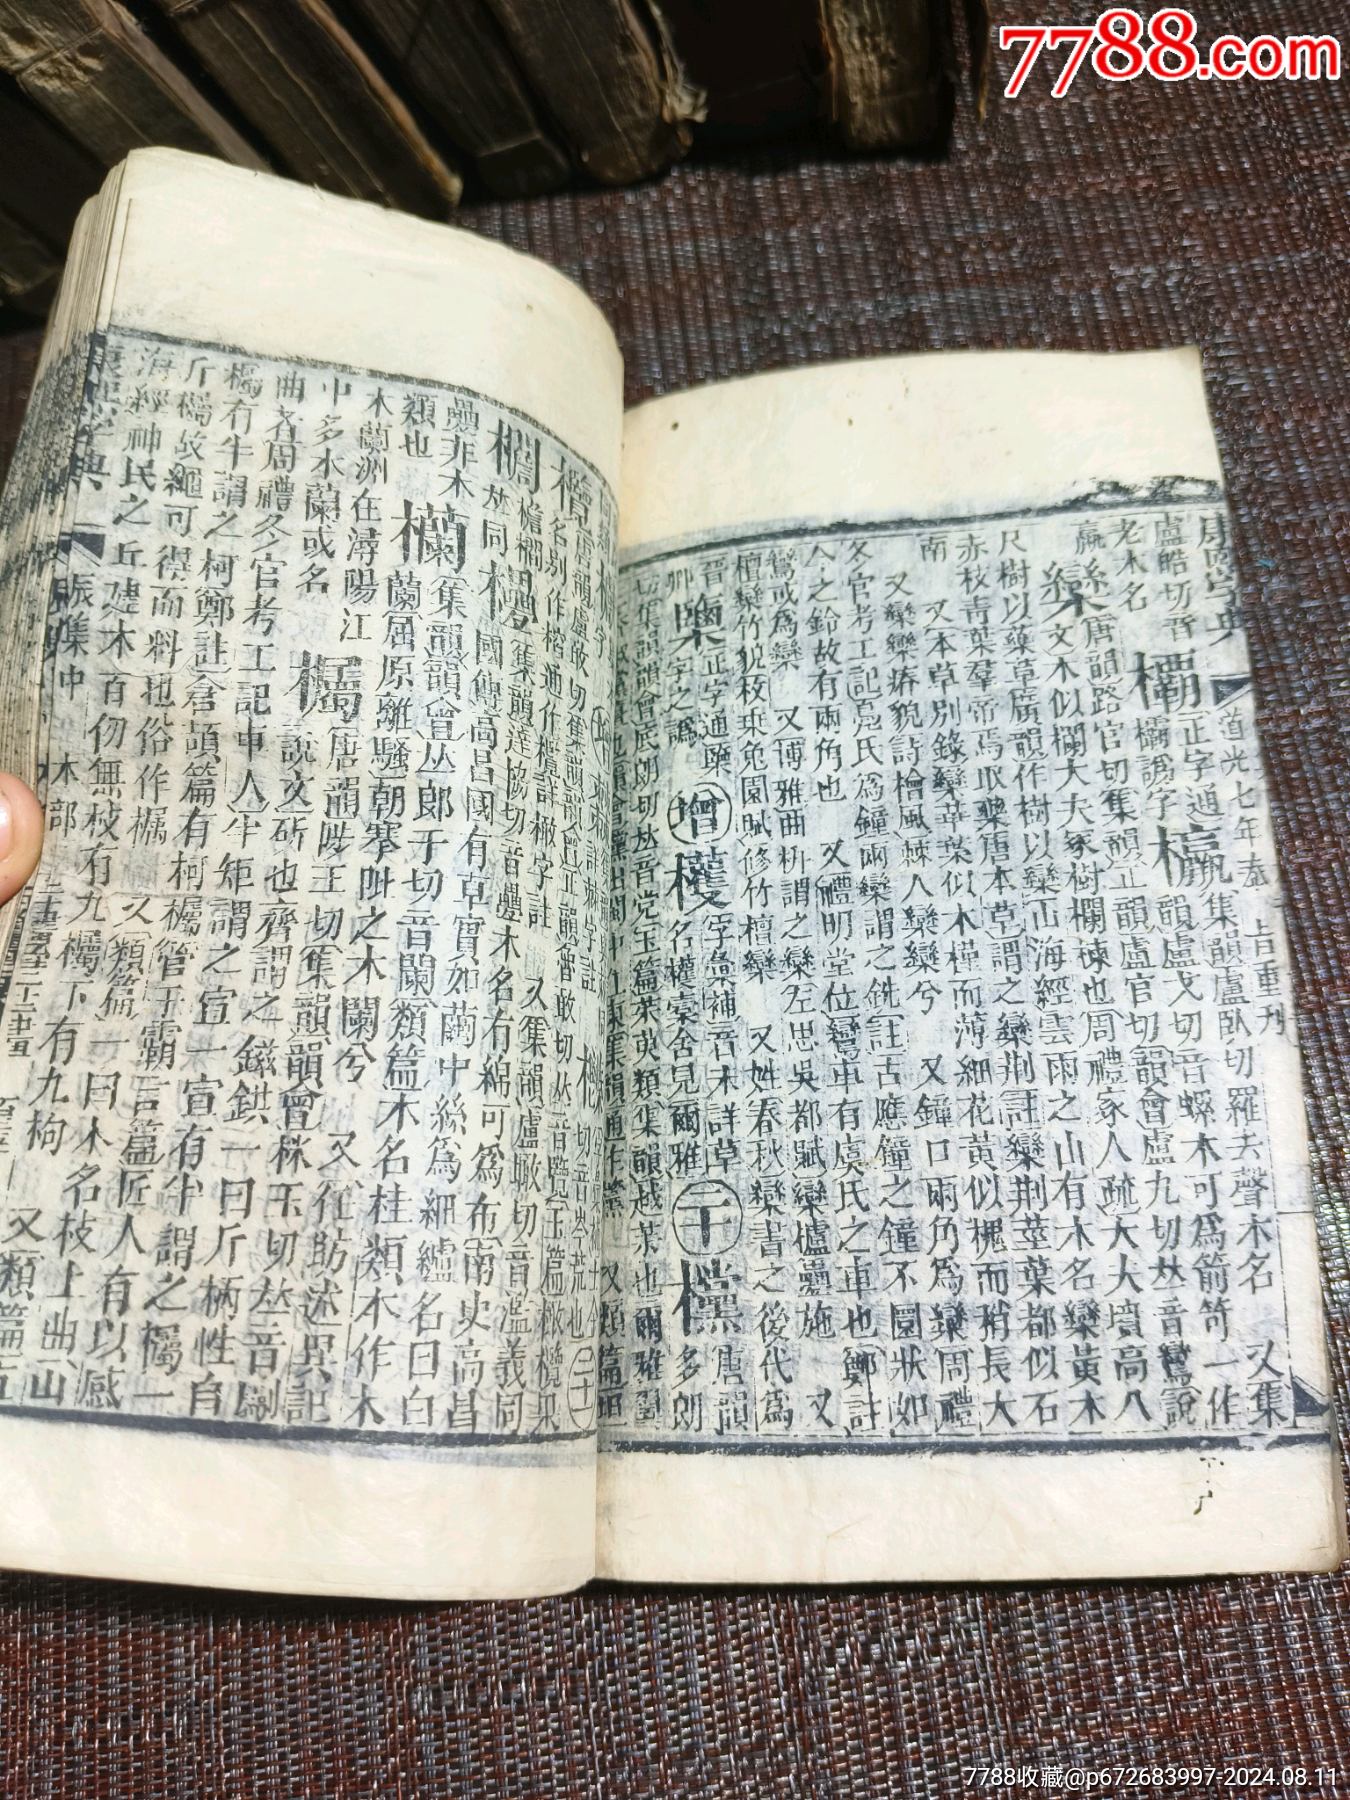 7788.com
康熙字典 道光七年奉 旨重刊
盧皓切音
集韻盧臥切羅去聲木名 又集
老木名 欛正字通 欛譌字 韻盧戈切音螺木可爲箭笴一作
欒唐韻路官切集韻正韻盧官切韻會盧九切𠀤音鸞說
文木似欄大夫冢樹欄楝也周禮冢人疏大夫墳高八
尺樹以藥草廣韻作樹以欒山海經雲雨之山有木名欒黃木
赤枝青葉羣帝焉取藥唐本草謂之欒荆註欒荆莖葉都似石
南 又本草別錄欒華葉似木槿而薄細花黃似槐而稍長大
又欒欒瘠貌詩檜風棘人欒欒兮 又鐘口兩角爲欒周禮
冬官考工記鳧氏爲鐘兩欒謂之銑註古應鐘之鐘不圜狀如
今之鈴故有兩角也 又禮明堂位鸞車有虞氏之車也鄭註
鸞或爲欒 又博雅曲枅謂之欒左思吳都賦欒櫨疊施 又
檀欒竹貌枚乘兔園賦修竹檀欒 又姓春秋欒書之後代爲
晉卿
正字通
字之譌 增 字彙補音未詳草名權黃舍見爾雅 二十 欓唐韻多朗
切集韻韻會底朗切𠀤音党玉篇茱萸類集韻越茱也爾雅翼
名別作
又集韻盧瞰切音濫義同
𠀤同
集韻達協切音疊木名有綿可爲布南史高昌
國傳高昌國有草實如繭中絲爲細纑名曰白
疊非木類也 欗集韻韻會𠀤郎干切音闌類篇木名桂類木作木
蘭屈原離騷朝搴阰之木蘭兮 又任昉述異記
木蘭洲在潯陽江中多木蘭或名
欘唐韻陟玉切集韻韻會株玉切𠀤音斸
說文斫也齊謂之鎡錤一曰斤柄性自
曲者周禮冬官考工記車人半矩謂之宣一宣有半謂之欘一
欘有半謂之柯鄭註倉頡篇有柯欘管子霸言篇匠人有以感
斤欘故繩可得而料也俗作欘 又類篇一曰木名枝上曲山
海經神民之丘建木百仞無枝有九欘下有九枸 又類篇
康熙字典 辰集中 木部
7788收藏@p672683997-2024.08.11